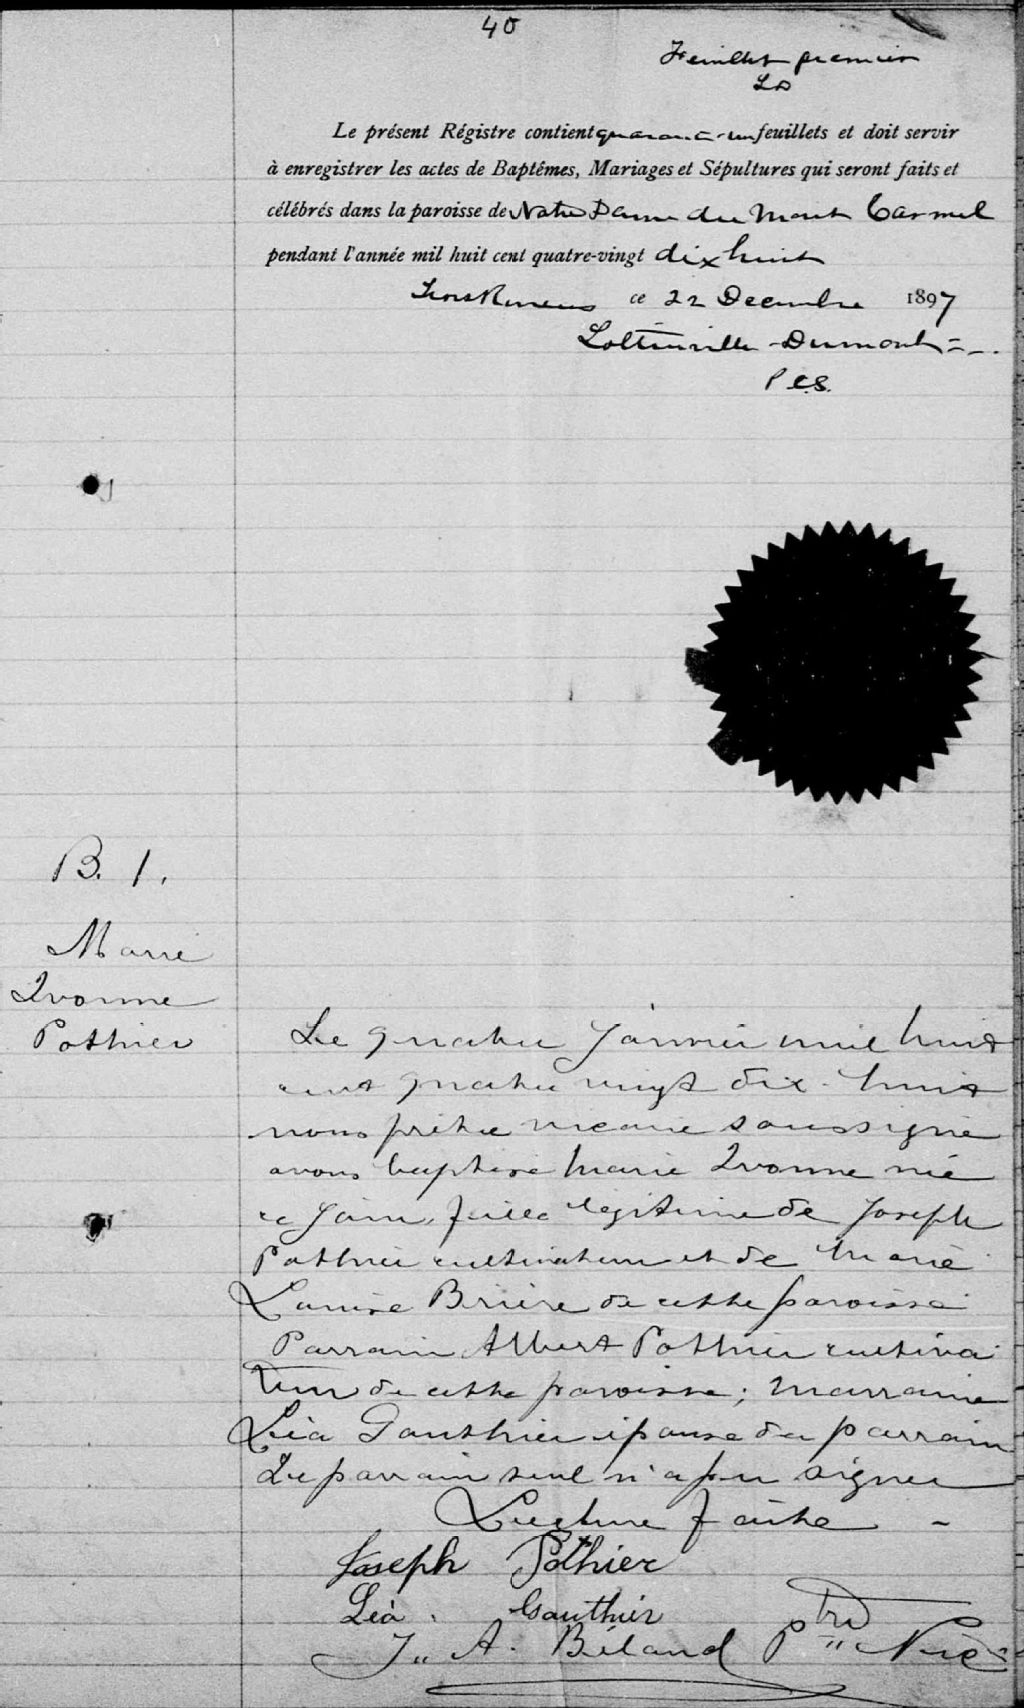 40
Feuillet premier
LD
Le présent Régistre contient quarante-un feuillets et doit servir
à enregistrer les actes de Baptêmes, Mariages et Sépultures qui seront faits et
célébrés dans la paroisse de Notre Dame du Mont Carmel
pendant l'année mil huit cent quatre-vingt dix huit
Trois Rivieres ce 22 Decembre 1897
Lottinville Dumont
P.C.S.
B. 1.
Marie
Ivonne
Pothier
Le quatre Janvier mil huit
cent quatre vingt dix-huit
nous prêtre vicaire soussigné
avons baptisé Marie Ivonne née
ce jour, fille légitime de Joseph
Pothier cultivateur et de Marie
Louise Brière de cette paroisse
Parrain Albert Pothier cultiva
teur de cette paroisse; marraine
Léa Gauthier épouse du parrain
Le parrain seul n'a pu signer
Lecture faite
Joseph Pothier
Léa Gauthier
J. A. Béland Ptre Vic